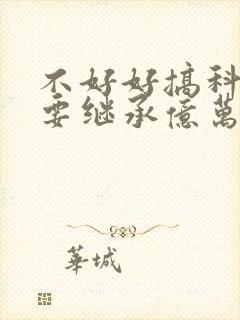 不好好搞科
要继承億萬
華城